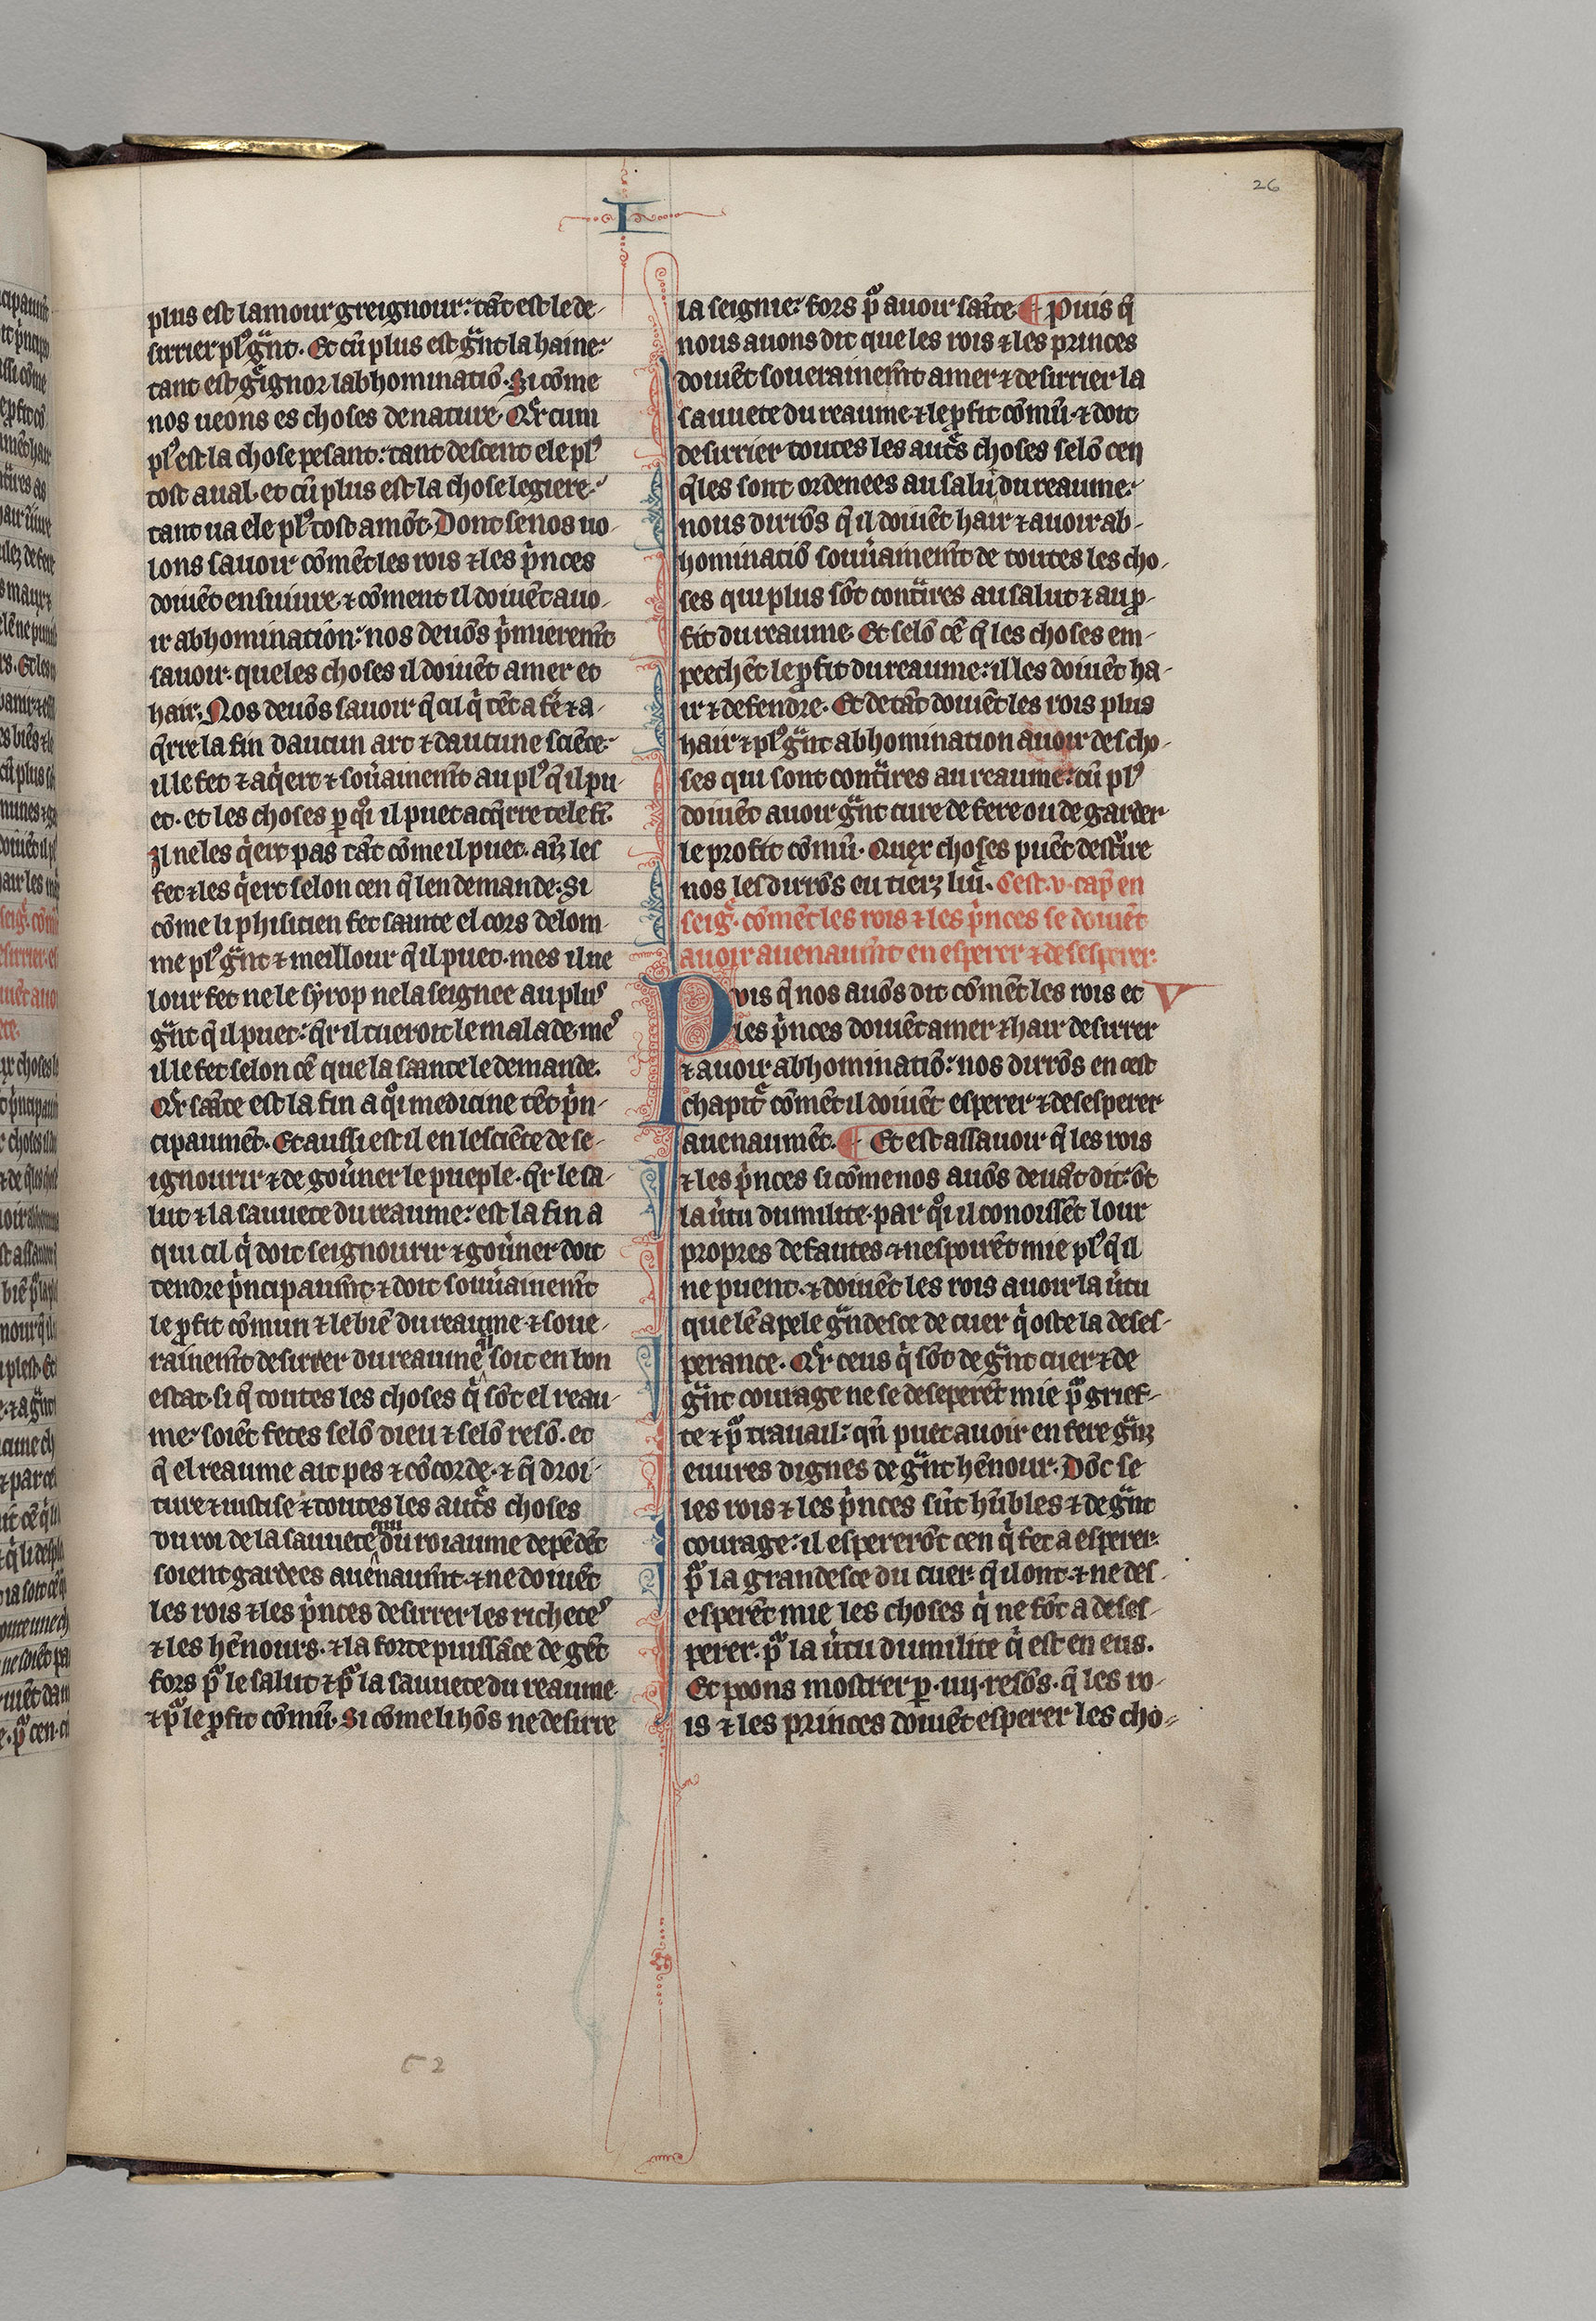 26
I
plus est lamour greignour: tāt est le de-
sirrier plꝰ gᵃnt. Et cū plus est gᵃnt la haine:
tant est gͥgnor labhominatiō. Si cōme
nos ueons es choses de nature. Qͣr cum
plꝰ est la chose pesant: tant descent ele plꝰ
tost aual. et cū plus est la chose legiere:
tant ua ele plꝰ tost amōt. Dont se nos uo-
lons sauoir cōmēt les rois ⁊ les pͥnces
doiuēt ensuiure. ⁊ cōment il doiuēt auo-
ir abhomination: nos deuōs pͥmieremt̄
sauoir. queles choses il doiuēt amer et
hair. Nos deuōs sauoir q̄ cil qͥ tēt a fēʳ ⁊ a-
q̄rre la fin daucun art ⁊ daucune sciēce:
il le fet ⁊ aqͥert ⁊ souʾainemt̄ au plꝰ q̄ il pu-
et. et les choses ꝑ qͦi il puet acq̄rre tele fī.
Il ne les qͥert pas tāt cōme il puet. aīz les
fet ⁊ les qͥert selon cen q̄ len demande. Si
cōme li phisicien fet sante el cors de lom-
me plꝰ gᵃnt ⁊ meillour q̄ il puet. mes il ne
lour fet ne le syrop ne la seignee au plus
gᵃnt q̄ il puet: qͣr il tueroit le malade. mes
il le fet selon cē que la sante le demande.
Qͣr sāte est la fin a qͦi medicine tēt pͥn-
cipaumēt. Et aussi est il en lesciēce de se-
ignourir ⁊ de gouʾner le pueple. qͣr le sa-
lut ⁊ la sauuete du reaume: est la fin a
qui cil qͥ doit seignourir ⁊ gouʾner doit
tendre pͥncipaumt̄. ⁊ doit souuʾainemt̄
le ꝓfit cōmun ⁊ le biē du reaume ⁊ soue-
rainemt̄ desirrer du reaume ql soit en bon
estat. si q̄ toutes les choses qͥ sōt el reau-
me: soiēt fetes selō dieu ⁊ selō resō. et
q̄ el reaume ait pes ⁊ cōcorde. ⁊ q̄ droi-
ture ⁊ iustise ⁊ toutes les autͤs choses
du roi de la sauuete qui du roiaume depēdēt
soient gardees auenaumt̄. ⁊ ne doiuēt
les rois ⁊ les pͥnces desirrer les richeces
⁊ les hēnours. ⁊ la forte puissāce de gēt
fors pᵒ le salut ⁊ pᵒ la sauuete du reaume
⁊ pᵒ le ꝓfit cōmū. Si cōme li hōs ne desirre
la seignie: fors pᵒ auoir sāte. ¶ Puis q̄
nous auons dit que les rois ⁊ les princes
doiuēt souerainemt̄ amer ⁊ desirrier la
sauuete du reaume. ⁊ le ꝓfit cōmū. ⁊ doit
desirrier toutes les autͤs choses selō cen
q̄les sont ordenees au salu du reaume:
nous dirrōs q̄ il doiuēt hair ⁊ auoir ab-
hominatiō souuʾainemt̄ de toutes les cho-
ses qui plus sōt contᵃires au salut ⁊ au ꝓ-
fit du reaume. Et selō cē q̄ les choses em-
peechēt le ꝓfit du reaume: il les doiuēt ha-
ir ⁊ defendre. Et de tāt doiuēt les rois plus
hair ⁊ plꝰ gᵃnt abhomination auoir des cho-
ses qui sont contᵃires au reaume: cū plꝰ
doiuēt auoir gᵃnt cure de fere ou de garder
le profit cōmū. Quex choses puēt destͬire
nos les dirrōs eu tierz liuͤ. Cest .v. capͥ en
seigͤ. cōmēt les rois ⁊ les pͥnces se doiuēt
auoir auenaumt̄ en esperer ⁊ desesperer.
Puis q̄ nos auōs dit cōmēt les rois et V
les pͥnces doiuēt amer ⁊ hair desirrer
⁊ auoir abhominatiō: nos dirrōs en cest
chapitͤ cōmēt il doiuēt esperer ⁊ desesperer
auenaumēt. ¶ Et est assauoir q̄ les rois
⁊ les pͥnces si cōme nos auōs deuāt dit: ōt
la uʾtu dumilite. par qͦi il conoissēt lour
propres defautes ⁊ nespoirēt mie plꝰ q̄ il
ne puent. ⁊ doiuēt les rois auoir la uʾtu
que lē apele gᵃndesce de cuer qͥ oste la deses-
perance. Qͣr ceus qͥ sōt de gᵃnt cuer ⁊ de
gᵃnt courage ne se deseperēt mie pᵒ grief-
te ⁊ pᵒ trauail: qn̄ puet auoir en fere gᵃnz
euures dignes de gᵃnt hēnour. Dōc se
les rois ⁊ les pͥnces sūt hūbles ⁊ de gᵃnt
courage: il espererōt cen qͥ fet a esperer.
pᵒ la grandesce du cuer. q̄ il ont. ⁊ ne des-
esperēt mie les choses qͥ ne fōt a deses-
perer. pᵒ la uʾtu dumilite qͥ est en eus.
Et poons mostrer ꝑ .iiij. resōs. q̄ les ro-
is ⁊ les princes doiuēt esperer les cho-
52